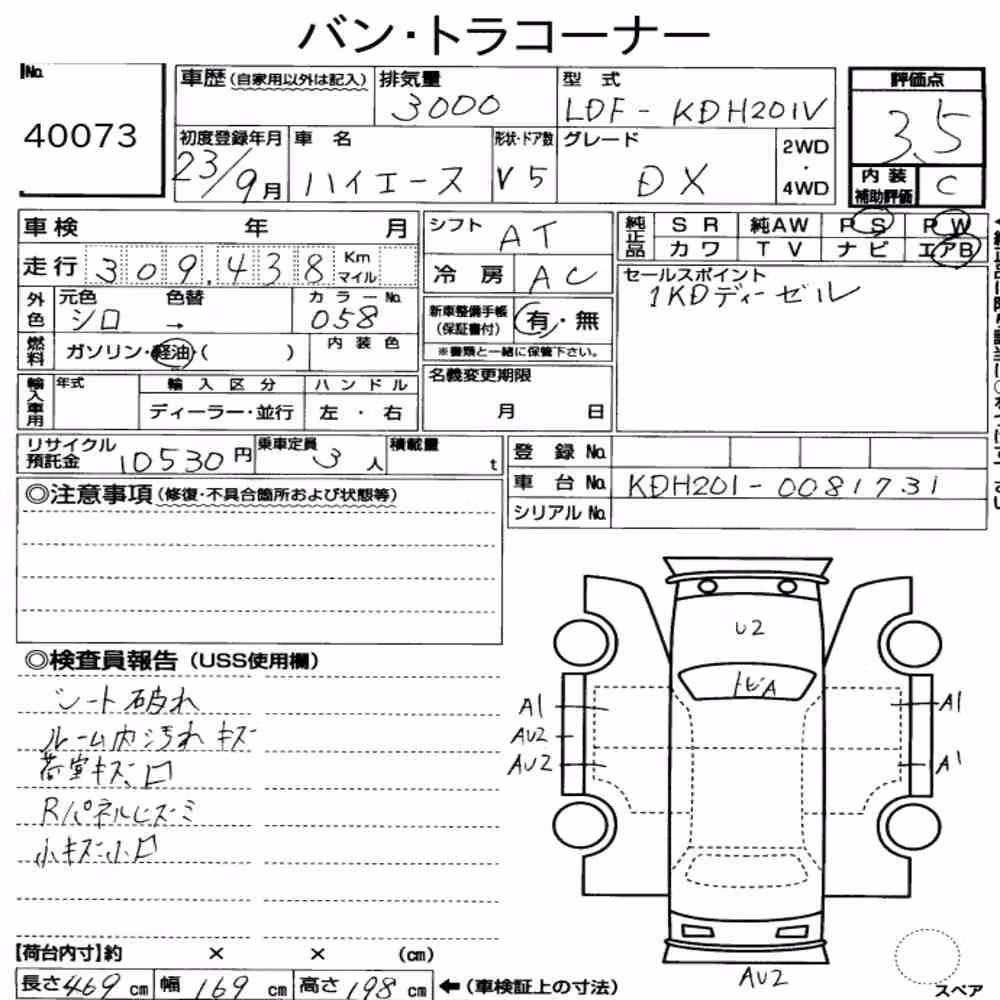 バン・トラコーナー
No.
40073
車歴(自家用以外は記入) 排気量 3000
型式 LDF-KDH201V
評価点 3.5
初度登録年月 23/9月
車名 ハイエース
形状・ドア数 V5
グレード DX
2WD・4WD
内装補助評価 C
車検 年 月
シフト AT
純正品 SR 純AW PS PW
カワ TV ナビ エアB
走行 309,438 Km マイル
冷房 AC
セールスポイント
1KDディーゼル
外色 元色 シロ 色替 → カラーNo. 058
新車整備手帳(保証書付) 有・無
※書類と一緒に保管下さい。
燃料 ガソリン・軽油・( ) 内装色
輸入車用 年式 輸入区分 ハンドル
ディーラー・並行 左・右
名義変更期限
月 日
リサイクル預託金 10530円 乗車定員 3人 積載量 t
登録No.
車台No. KDH201-0081731
シリアルNo.
◎注意事項(修復・不具合箇所および状態等)
◎検査員報告(USS使用欄)
シート破れ
ルーム内汚れ キズ
荷室キズ、凹
Rパネルヒズミ
小キズ小凹
U2
トビA
A1
AU2
AU2
A1
A1
AU2
スペア
【荷台内寸】約 × × (cm)
長さ469cm 幅169cm 高さ198cm ←(車検証上の寸法)